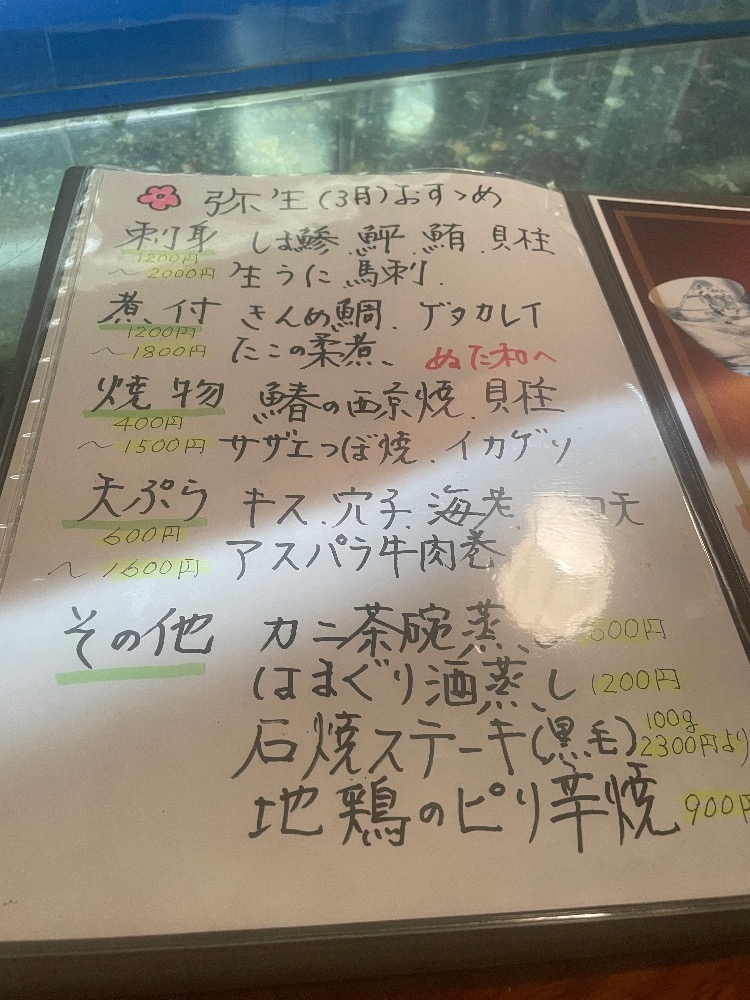 弥生(3月)おすゝめ
刺身 しま鯵、鮃、鮪、貝柱
1200円
～2000円 生うに、馬刺、
煮付 きんめ鯛、ゲタカレイ
1200円
～1800円 たこの柔煮、ぬた和へ
焼物 鰆の西京焼、貝柱
400円
～1500円 サザエつぼ焼、イカゲソ
天ぷら キス、穴子、海老、天
600円
～1600円 アスパラ牛肉巻
その他 カニ茶碗蒸し 600円
はまぐり酒蒸し 1200円
石焼ステーキ(黒毛) 100g
2300円より
地鶏のピリ辛焼 900円